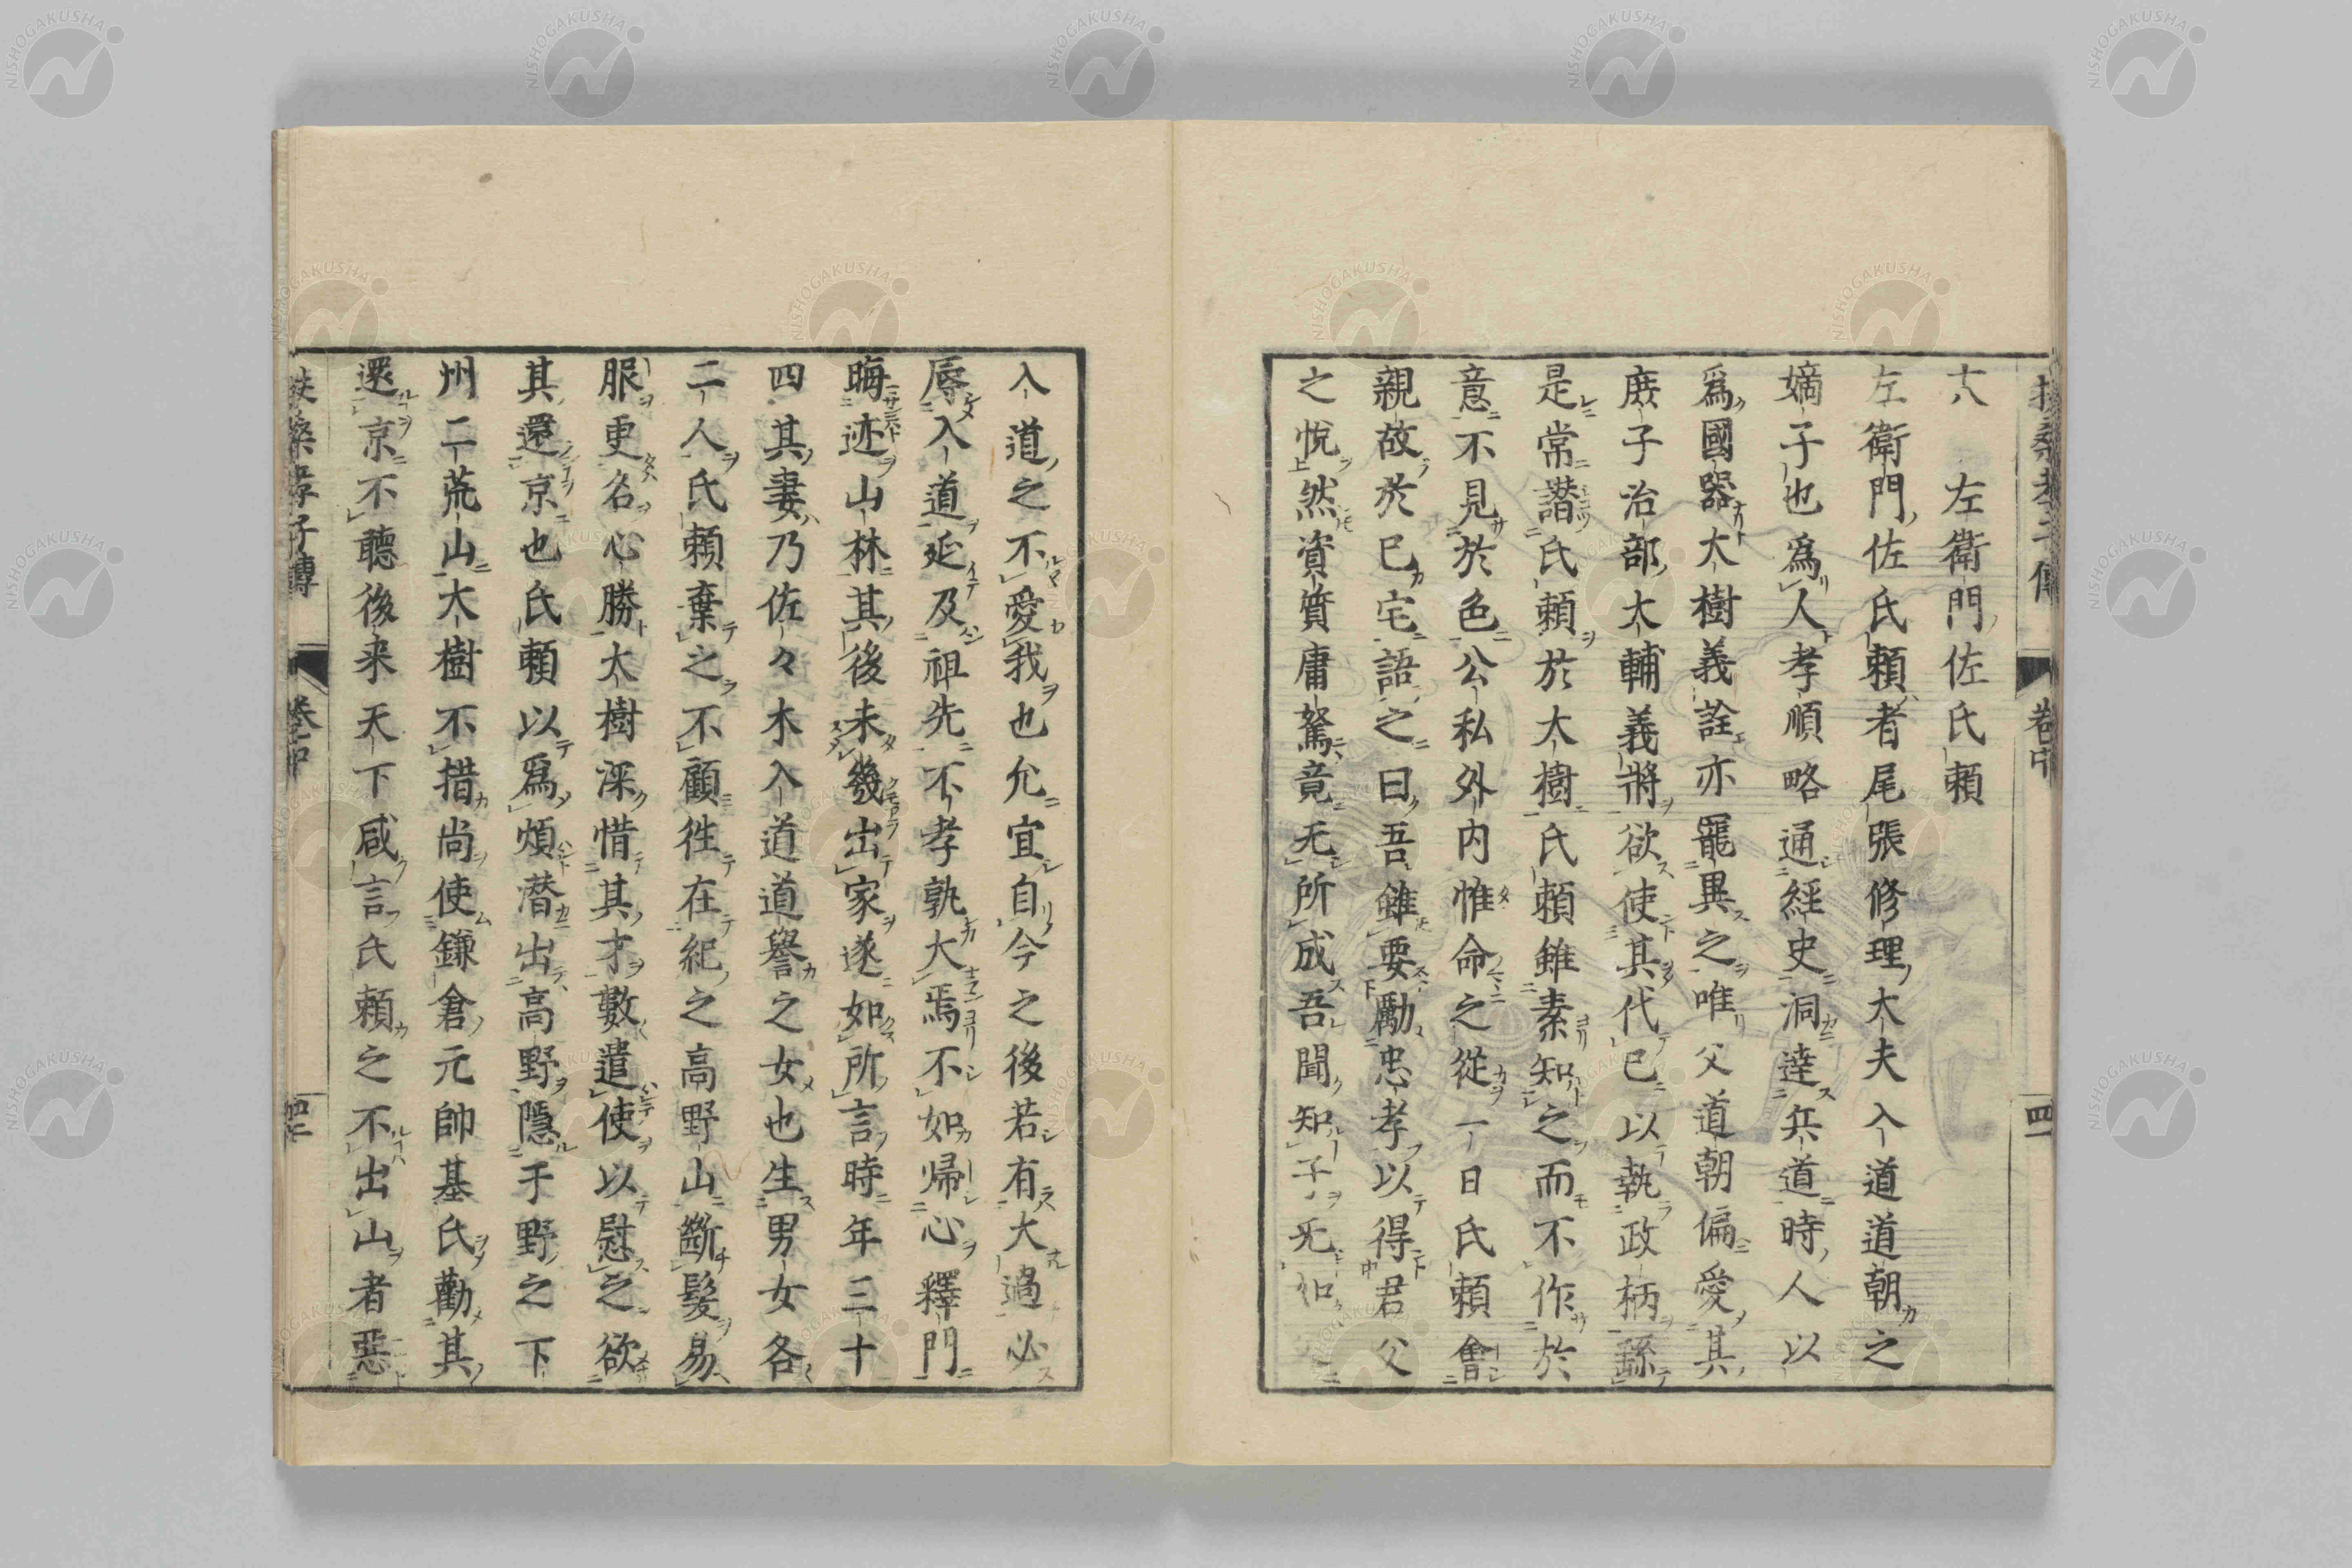 十八 左衛門佐氏頼
左衛門佐氏頼者尾張修理大夫入道道朝之
嫡子也爲人孝順略通經史洞達兵道時人以
爲國器大樹義詮亦寵異之唯父道朝偏愛其
庶子治部太輔義將欲使其代已以執政柄繇
是常譖氏頼於大樹氏頼雖素知之而不作於
意不見於色公私外内惟命之從一日氏頼會
親故於已宅語之曰吾雖要勵忠孝以得君父
之悅然資質庸駑竟无所成吾聞知子无如
入道之不愛我也允宜自今之後若有大過必
辱入道延及祖先不孝孰大焉不如帰心釋門
晦迹山林其後未幾出家遂如所言時年三十
四其妻乃佐々木入道道譽之女也生男女各
二人氏頼棄之不顧徃在紀之高野山斷髮易
服更名心勝大樹深惜其才數遣使以慰之欲
其還京也氏頼以爲煩潜出高野隱于野之下
州二荒山大樹不措尚使鎌倉元帥基氏勸其
還京不聽後来天下咸言氏頼之不出山者惡
扶桑孝子傳 卷中 四一
扶桑孝子傳 卷中 四二
NISHOGAKUSHA